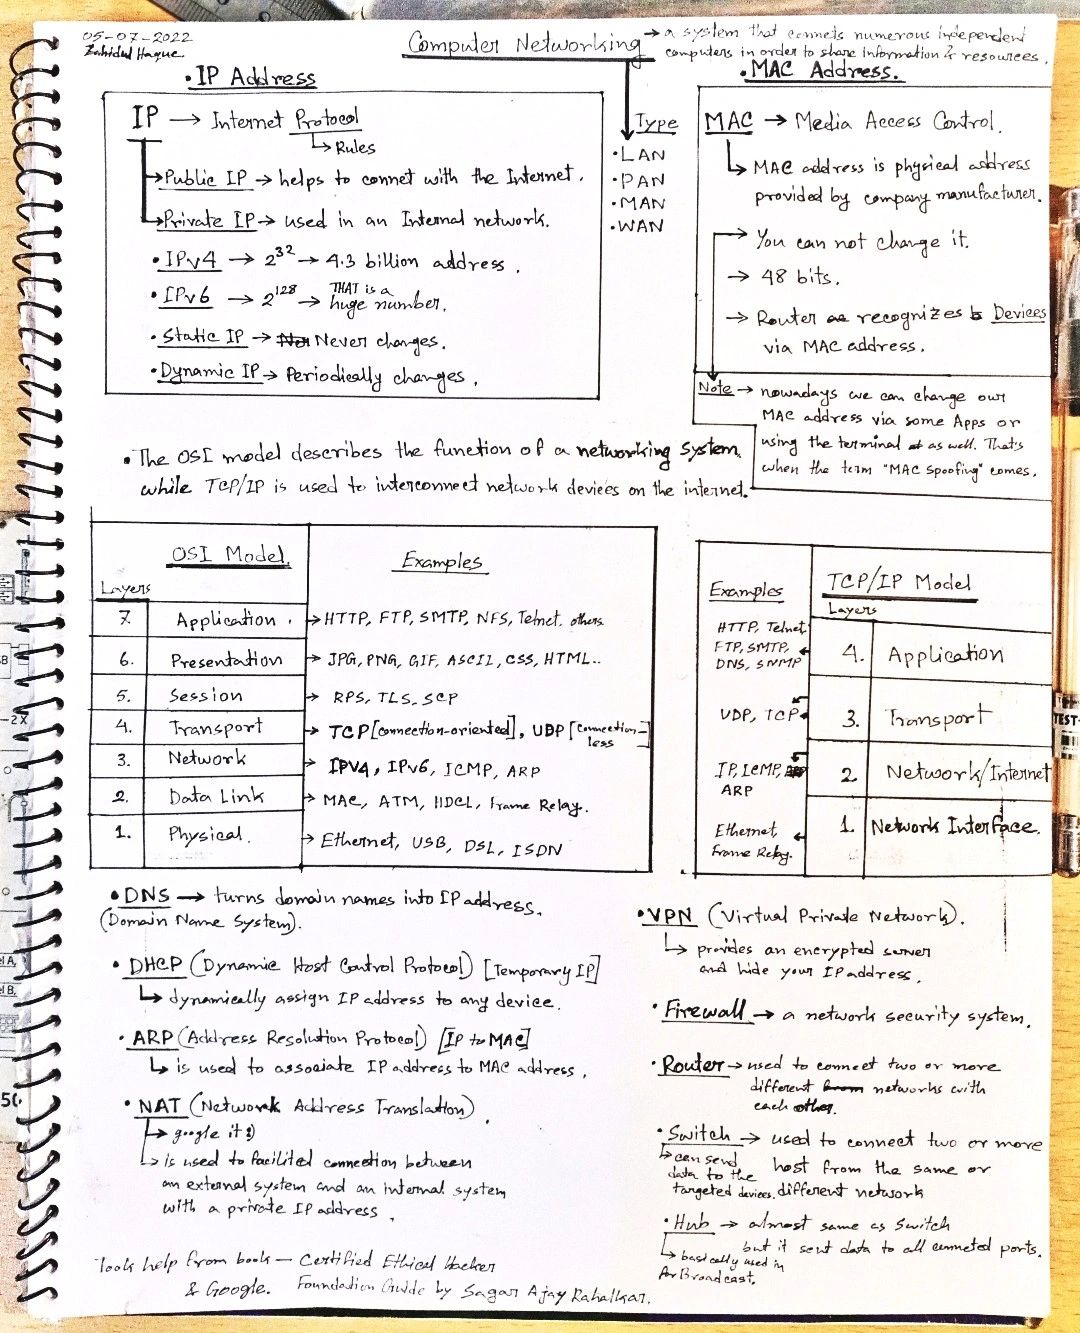 05-07-2022
Zahidul Haque
Computer Networking → a system that connets numerous independent
computers in order to share information & resources.
• IP Address
IP → Internet Protocol
↳ Rules
→ Public IP → helps to connet with the Internet.
→ Private IP → used in an Internal network.
• IPv4 → 2^32 → 4.3 billion address.
• IPv6 → 2^128 → THAT is a
huge number.
• Static IP → Never changes.
• Dynamic IP → Periodically changes.
Type
• LAN
• PAN
• MAN
• WAN
• MAC Address.
MAC → Media Access Control.
↳ MAC address is physical address
provided by company manufacturer.
→ You can not change it.
→ 48 bits.
→ Router recognizes Devices
via MAC address.
Note → nowadays we can change our
MAC address via some Apps or
using the terminal as well. That's
when the term "MAC spoofing" comes.
• The OSI model describes the function of a networking system.
while TCP/IP is used to interconnect network devices on the internet.
OSI Model Examples
Layers
7. Application. → HTTP, FTP, SMTP, NFS, Telnet, others
6. Presentation → JPG, PNG, GIF, ASCII, CSS, HTML..
5. Session → RPS, TLS, SCP
4. Transport → TCP [connection-oriented], UDP [connection-
less]
3. Network → IPV4, IPV6, ICMP, ARP
2. Data Link → MAC, ATM, HDCL, Frame Relay.
1. Physical. → Ethernet, USB, DSL, ISDN
Examples TCP/IP Model
Layers
HTTP, Telnet
FTP, SMTP, ← 4. Application
DNS, SNMP
UDP, TCP ← 3. Transport
IP, ICMP, ← 2 Network/Internet
ARP
Ethernet, ← 1. Network Interface.
Frame Relay.
• DNS → turns domain names into IP address.
(Domain Name System).
• DHCP (Dynamic Host Control Protocol) [Temporary IP]
↳ dynamically assign IP address to any device.
• ARP (Address Resolution Protocol) [IP to MAC]
↳ is used to associate IP address to MAC address.
• NAT (Network Address Translation)
↳ google it :)
↳ is used to facilited connection between
an external system and an internal system
with a private IP address.
• VPN (Virtual Private Network).
↳ provides an encrypted server
and hide your IP address.
• Firewall → a network security system.
• Router → used to connect two or more
different networks with
each other.
• Switch → used to connect two or more
host from the same or
different network
↳ can send
data to the
targeted devices.
• Hub → almost same as Switch
but it sent data to all conneted ports.
↳ basically used in
Broadcast.
Took help from book — Certified Ethical Hacker
& Google. Foundation Guide by Sagar Ajay Rahalkar.